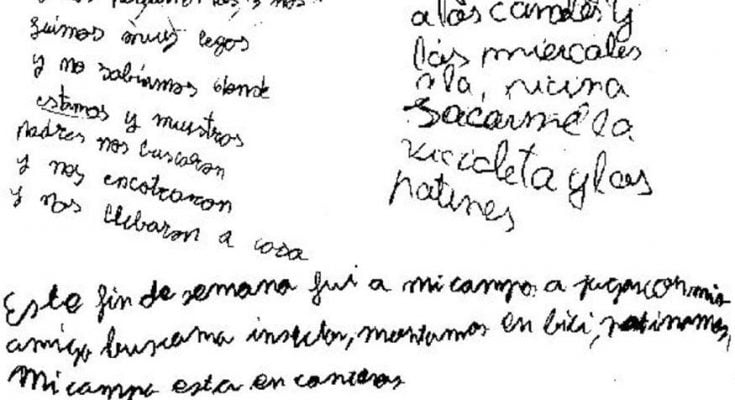 y nos
fuimos muy legos
y no sabíamos donde
estamos y nuestros
padres nos buscaron
y nos encotraron
y nos llebaron a casa
a las canoles y
las miercales
a la, picina
Sacarme la
vicicleta y los
patines
Este fin de semana fui a mi campo a jugar con mis
amigo buscama insectos, montamos en bici, patinamos,
Mi campo esta en